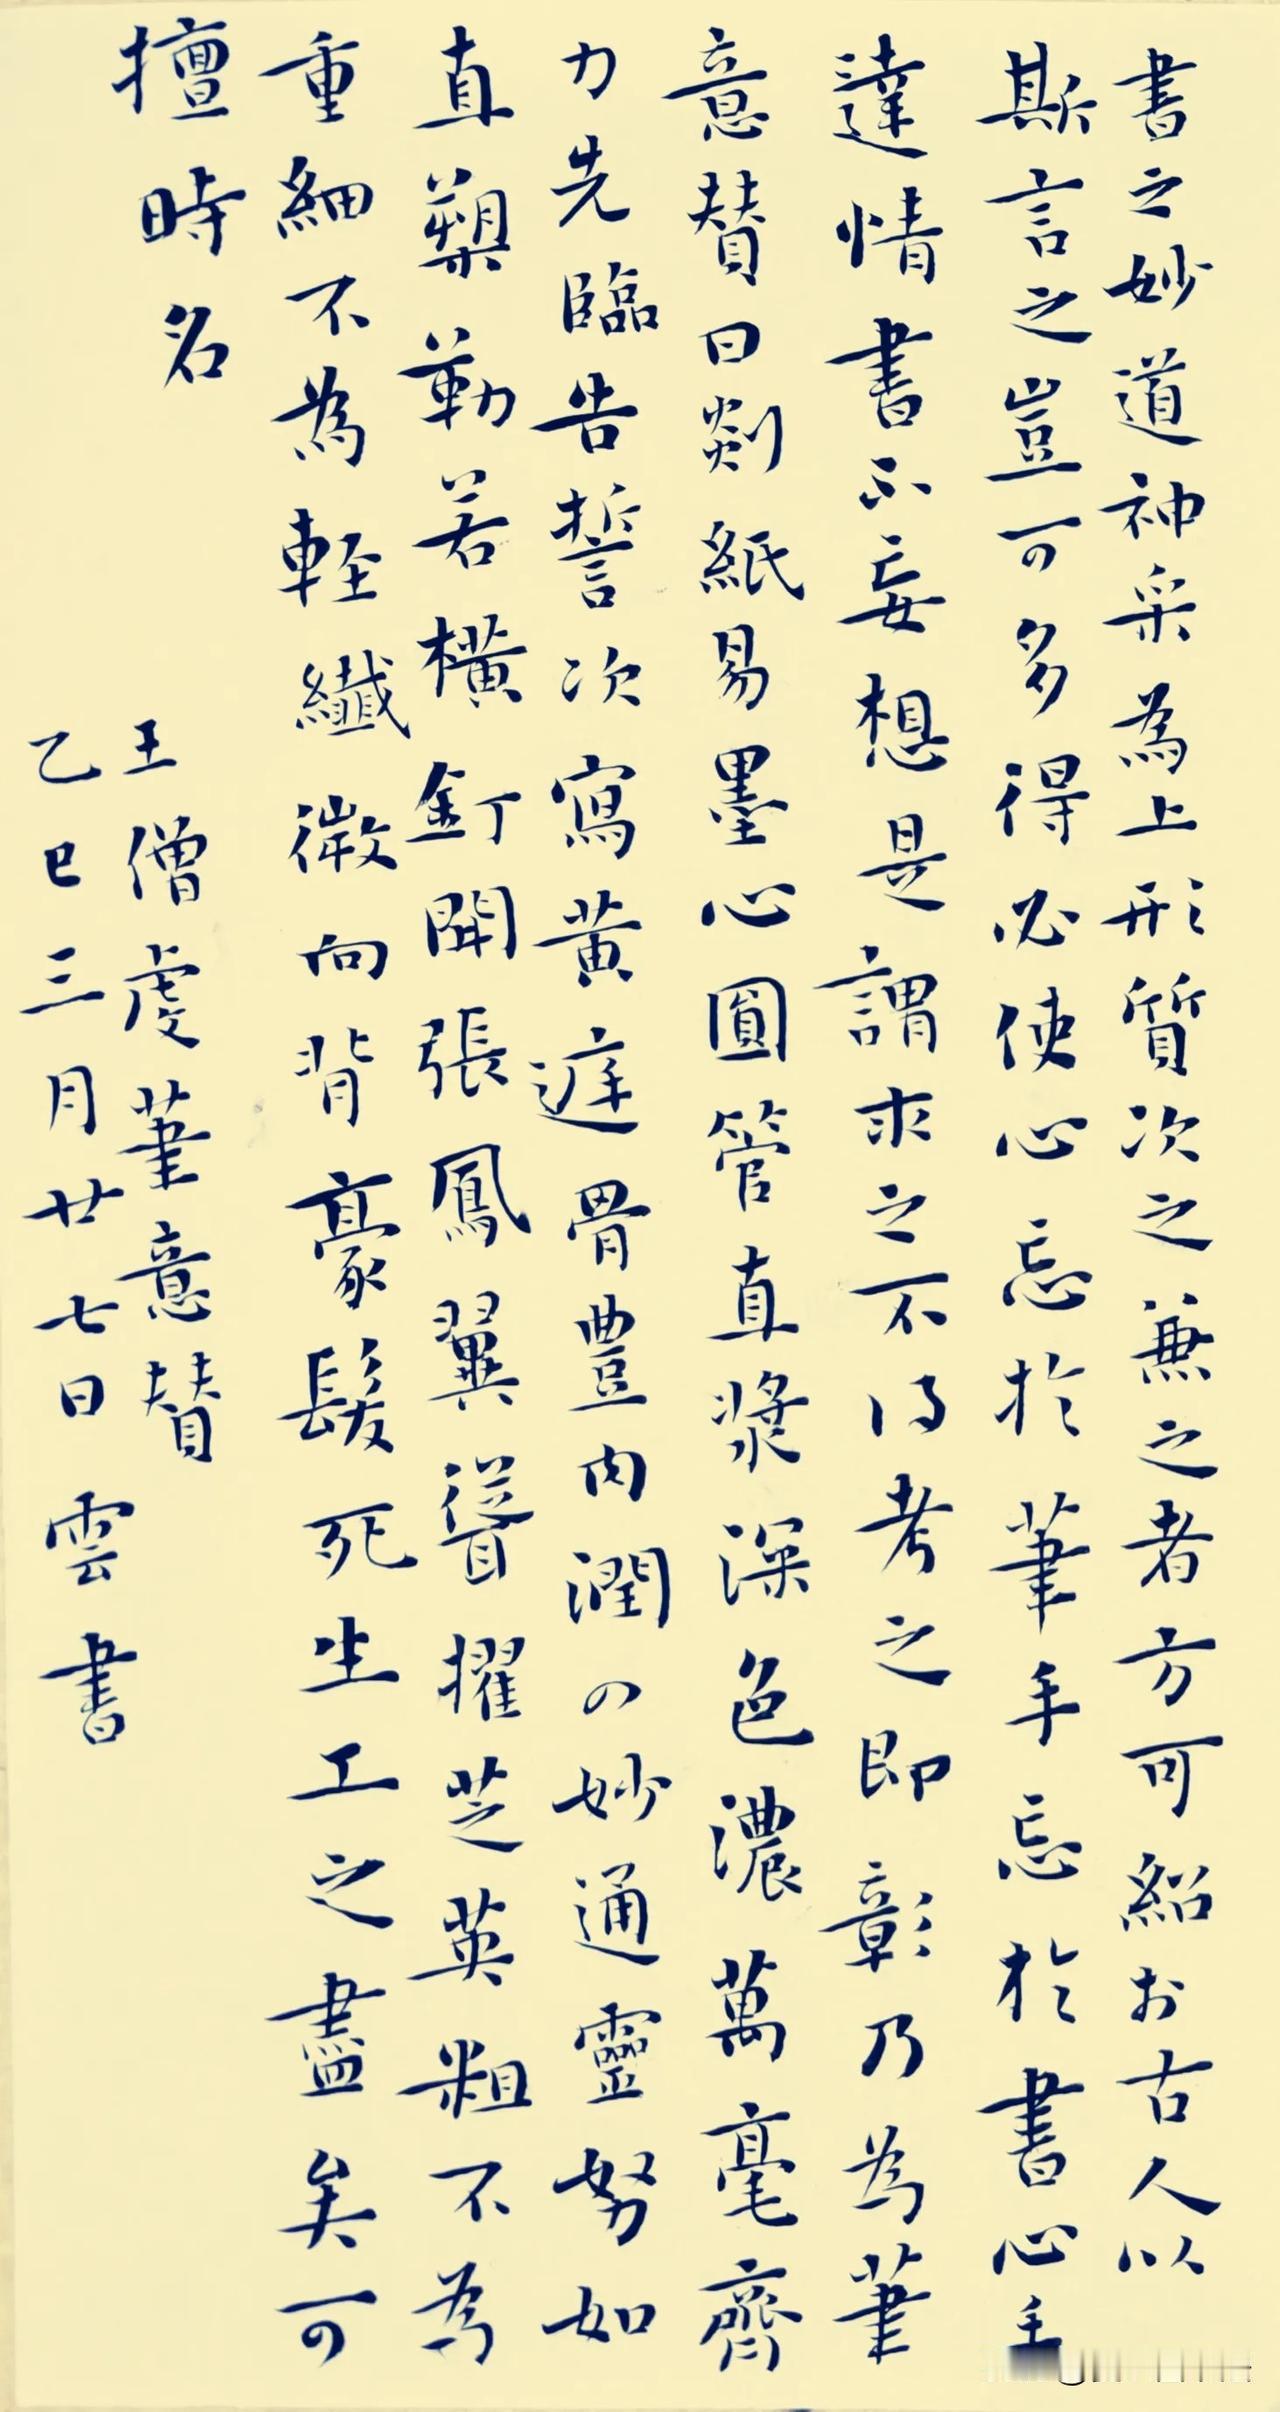 書之妙道神采為上形質次之兼之者方可紹於古人以
斯言之豈可多得必使心忘於筆手忘於書心手
達情書不妄想是謂求之不得考之即彰乃為筆
意賛曰剡紙易墨心圓管直漿深色濃萬毫齊
力先臨告誓次寫黃庭骨豊肉潤入妙通靈努如
直槊勒若橫釘開張鳳翼聳擢芝英粗不為
重細不為軽纖微向背豪髮死生工之盡矣可
擅時名
王僧虔筆意賛
乙巳三月廿七日雲書